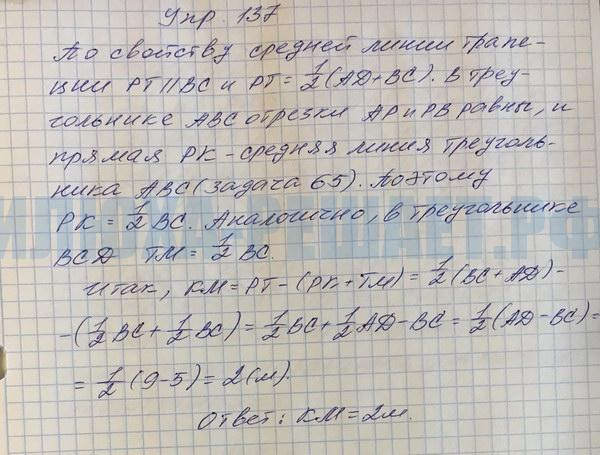 Упр 137
По свойству средней линии трапе-
ции PT||BC и PT = 1/2 (AD+BC). В треу-
гольнике ABC отрезки AP и PB равны, и
прямая PK - средняя линия треуголь-
ника ABC (задача 65). Поэтому
PK = 1/2 BC. Аналогично, в треугольнике
BCD TM = 1/2 BC.
Итак, KM = PT - (PK + TM) = 1/2 (BC + AD) -
- (1/2 BC + 1/2 BC) = 1/2 BC + 1/2 AD - BC = 1/2 (AD - BC) =
= 1/2 (9-5) = 2 (м).
Ответ: KM = 2м.